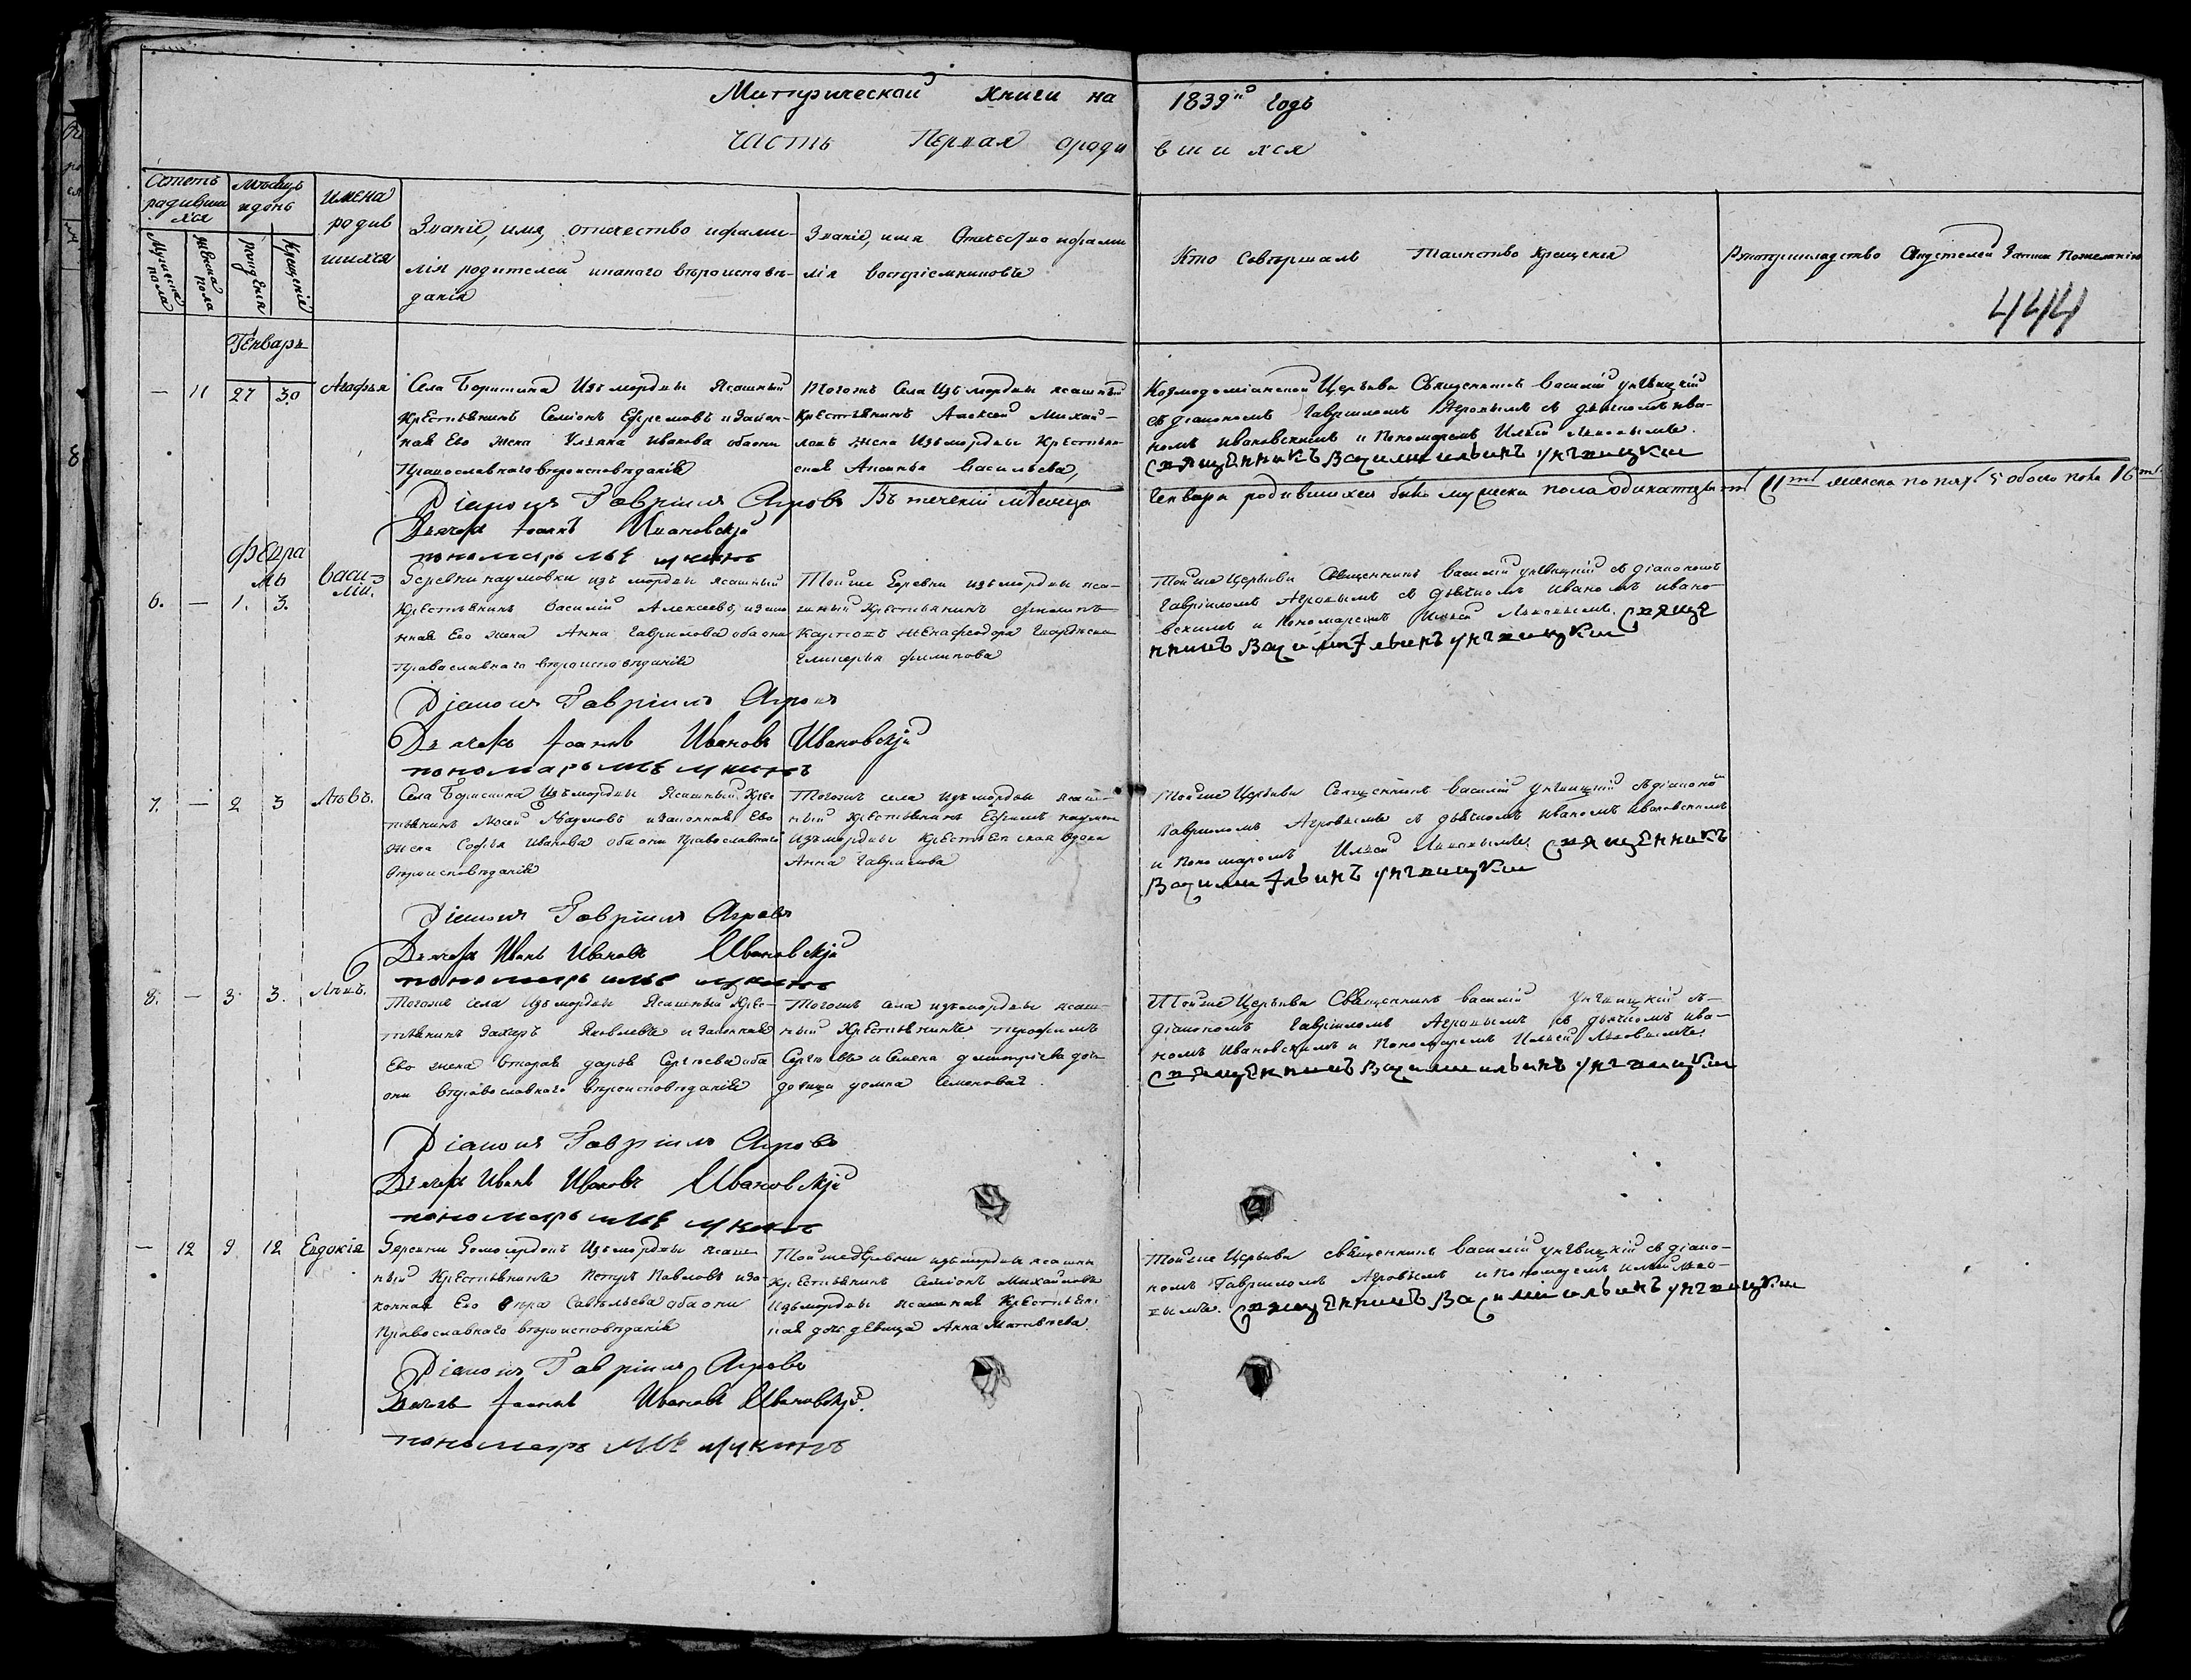 Метрической книги на 1839й годъ
часть Первая ороди вшихся
Счетъ родившихся
Мужеска пола
женска пола
Месяцъ идень
рождения
Крещения
имена родив шихся
Званіе, имя, отчество ифами-
лія родителей икакого вероисповѣ-
данія
Званіе, имя Отчество ифами
лія восприемниковъ
Кто Совершалъ Таинство Крещения
Рукоприкладство Свидетелей Записи Пожеланію
444
Генварь
— 11 27 30 Агафья
Села Изъ мордвы Ясашный
Крестьянинъ Семіонъ Ефремовъ изакон-
ная Его жена Ульяна Иванова обаони
Православнаго вероисповѣданія
Тогожъ Села Изъ мордвы ясашный
Крестьянинъ Алексей Михай-
ловъ жена Изъ мордвы Крестьян
ская Васильева,
Козмодоміанской Церькви Священникъ Василий
съ діакономъ Гавриломъ Агровымъ съ дьячкомъ ива-
номъ ивановскимъ и Пономаремъ Ильей
Священникъ Василий ильинъ
Діаконъ Гавріилъ Агровъ
Въ течении мѣсяца Генваря родившихся было мужеска пола одинатцать 11ть женска полу 5 обоего пола 16ть
Дьячокъ Іоаннъ Ивановскій
пономарь
Февраль
6. — 1. 3. Василій.
Деревни наумовки изъ мордвы ясашный
Крестьянинъ Василій Алексеевъ изако
нная Его жена Анна Гаврилова обаони
Православнаго вероисповѣданія
Тойже Деревни изъ мордвы яса-
шный Крестьянинъ филипъ
Карповъ
филипова
Тойже Церькви Священникъ Василий съ діакономъ
Гавріиломъ Агровымъ съ дьячкомъ иваномъ ивано-
вскимъ и Пономаремъ Ильей Священ
никъ Василий Ильинъ
Діаконъ Гавріилъ Агровъ
Дьячокъ Іоаннъ Ивановъ Ивановскій
пономарь
7. — 2 3 Левъ.
Села Изъ мордвы Ясашный Крес
тьянинъ Наумовъ изаконная Его
жена Софья Иванова обаони православнаго
вероисповѣданія
Тогожъ села изъ мордвы ясаш-
ный Крестьянинъ Ефимъ наумов
изъ мордвы Крестьянская вдова
Анна Гаврилова
Тойже Церькви Священникъ Василий съ діаконо
Гавриломъ Агровымъ съ дьячкомъ иваномъ Ивановскимъ
и Пономаремъ Ильей Священникъ
Василий Ильинъ
Діаконъ Гавріилъ Агровъ
Дьячокъ Иванъ Ивановъ Ивановскій
пономарь
8. — 3 3. Левъ.
Тогожъ села Изъ мордвы Ясашный Крес-
тьянинъ Захаръ Яковлевъ изаконная
Его жена вторая дарья Сергеева оба
они православнаго вероисповѣданія
Тогожъ села изъ мордвы ясаш-
ный Крестьянинъ трофимъ
Сергѣевъ и Семена дмитриева доч
девица домна Семенова.
Тойже Церькви Священникъ василий съ-
діакономъ Гавріиломъ Агровымъ съ дьячкомъ ива-
номъ Ивановскимъ и Пономаремъ Ильей Львовымъ
Священникъ Василий ильинъ
Діаконъ Гавріилъ Агровъ
Дьячокъ Иванъ Ивановъ Ивановскій
пономарь
— 12 9 12 Евдокія
Деревни Изъ мордвы ясаш
ный Крестьянинъ Петръ Павловъ иза-
конная Его Савельева обаони
Православнаго вероисповѣданія
Тойже деревни изъ мордвы ясашны
Крестьянинъ Семіонъ Михайловъ
изъ мордвы ясашная Крестьян.
ская доч девица Анна Матвѣева.
Тойже Церькви священникъ Василий съ діако-
номъ Гавриломъ Агровымъ и Пономаремъ Ильей Льво-
вымъ. Священникъ Василий ильинъ
Діаконъ Гавріилъ Агровъ
Дьячокъ Іоаннъ Ивановъ Ивановскій.
пономарь